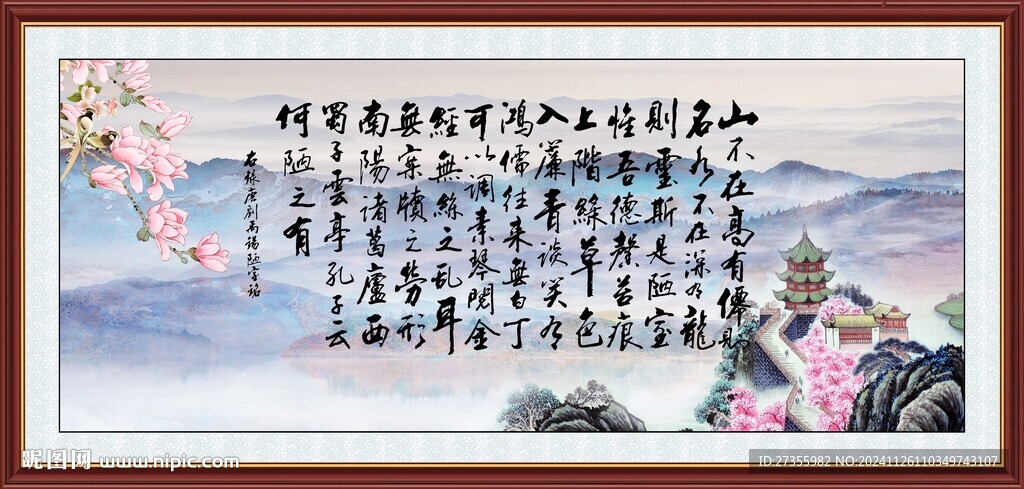 山不在高有僊則
名水不在深有龍
則靈斯是陋室
惟吾德馨苔痕
上階綠草色
入簾青談笑有
鴻儒往来無白丁
可以調素琴閱金
經無絲之乱耳
無案牘之勞形
南陽諸葛廬西
蜀子雲亭孔子云
何陋之有
右録唐劉禹锡陋室銘
昵图网 www.nipic.com
ID:27355982 NO:20241126110349743107